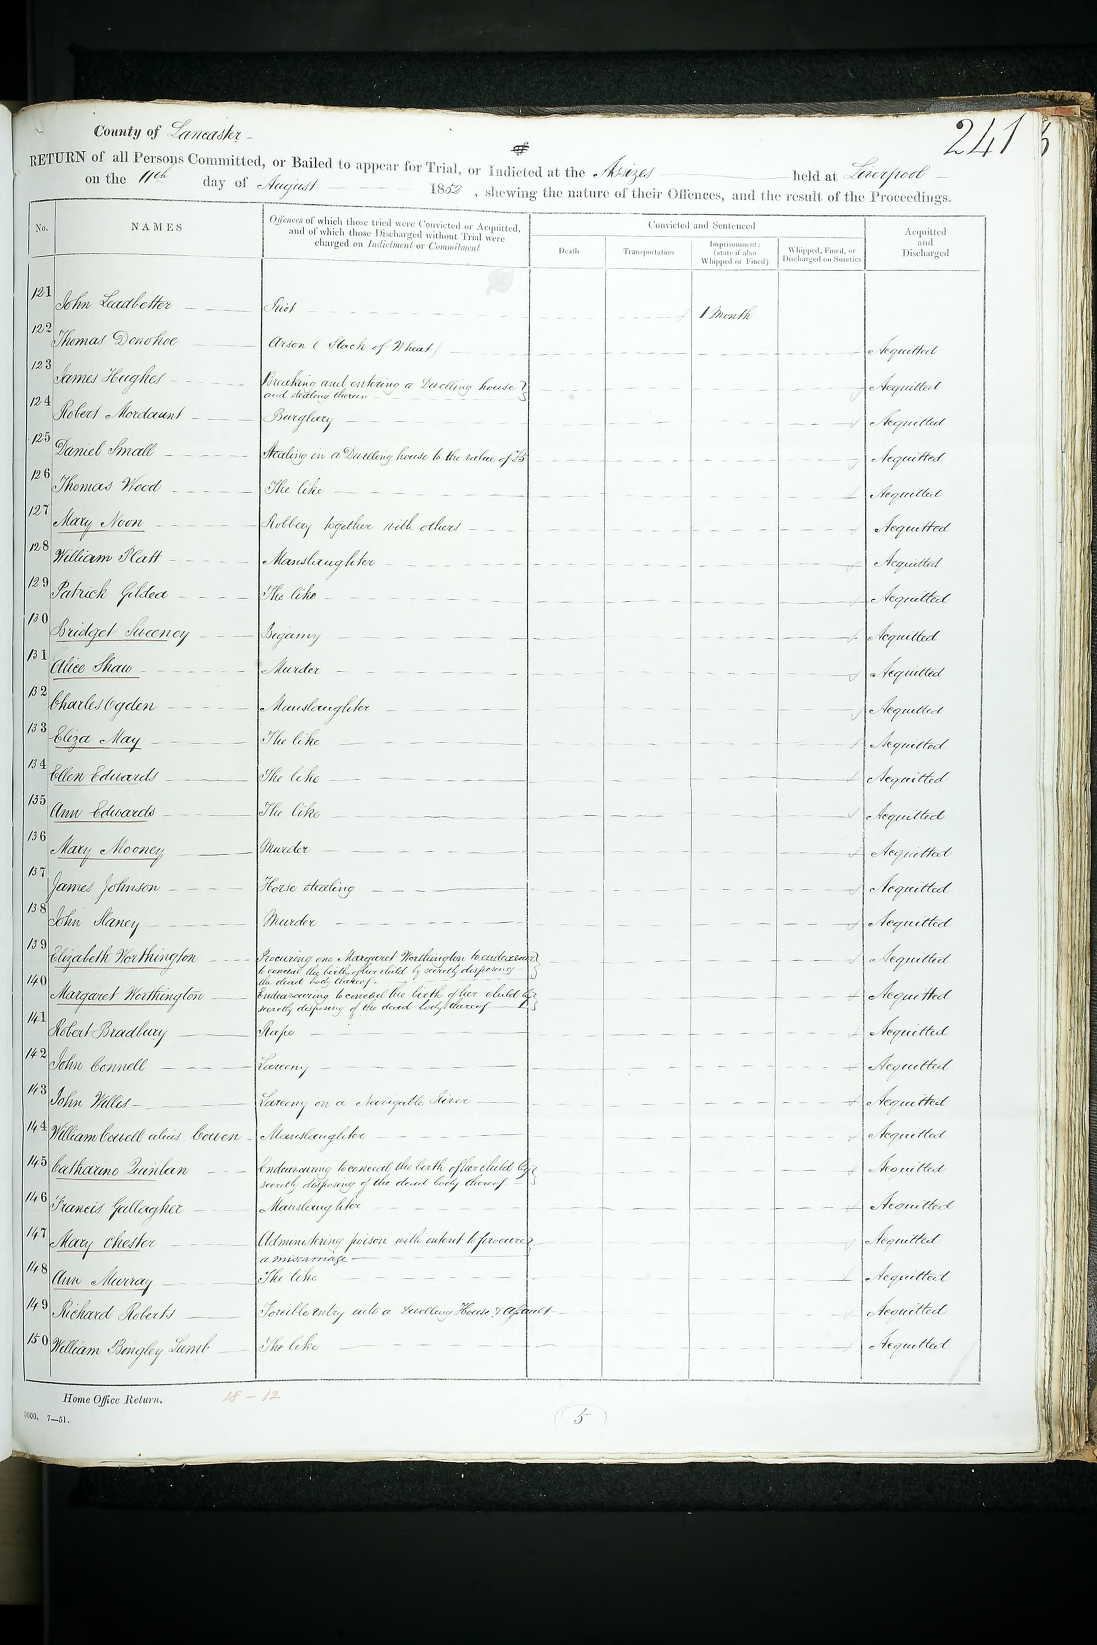 241
County of Lancaster
RETURN of all Persons Committed, or Bailed to appear for Trial, or Indicted at the Assizes held at Liverpool
on the 11th day of August 1852, shewing the nature of their Offences, and the result of the Proceedings.
No. NAMES Offences of which those tried were Convicted or Acquitted, and of which those Discharged without Trial were charged on Indictment or Commitment Convicted and Sentenced Death Transportation Imprisonment; (state if also Whipped or Fined) Whipped, Fined, or Discharged on Sureties Acquitted and Discharged
121 John Leadbetter Riot 1 Month
122 Thomas Donohoe Arson (Stack of Wheat) Acquitted
123 James Hughes Breaking and entering a Dwelling house Acquitted
and stealing therein
124 Robert Mordaunt Burglary Acquitted
125 Daniel Small Stealing in a Dwelling house to the value of £5 Acquitted
126 Thomas Wood The like Acquitted
127 Mary Noon Robbery together with others Acquitted
128 William Platt Manslaughter Acquitted
129 Patrick Gildea The like Acquitted
130 Bridget Sweeney Bigamy Acquitted
131 Alice Shaw Murder Acquitted
132 Charles Ogden Manslaughter Acquitted
133 Eliza May The like Acquitted
134 Ellen Edwards The like Acquitted
135 Ann Edwards The like Acquitted
136 Mary Mooney Murder Acquitted
137 James Johnson Horse stealing Acquitted
138 John Slaney Murder Acquitted
139 Elizabeth Worthington Procuring one Margaret Worthington to endeavour Acquitted
to conceal the birth of her child by secretly disposing
the dead body thereof
140 Margaret Worthington Endeavouring to conceal the birth of her child by Acquitted
secretly disposing of the dead body thereof
141 Robert Bradbury Rape Acquitted
142 John Connell Larceny Acquitted
143 John Willis Larceny on a Navigable River Acquitted
144 William Cowell alias Cowen Manslaughter Acquitted
145 Catharine Quinlan Endeavouring to conceal the birth of her child by Acquitted
secretly disposing of the dead body thereof
146 Francis Gallagher Manslaughter Acquitted
147 Mary Chester Administering poison with intent to procure Acquitted
a miscarriage
148 Ann Murray The like Acquitted
149 Richard Roberts Forcible entry into a Dwelling House & Assault Acquitted
150 William Bingley Lumb The like Acquitted
Home Office Return. 18 - 12
7—51.
5